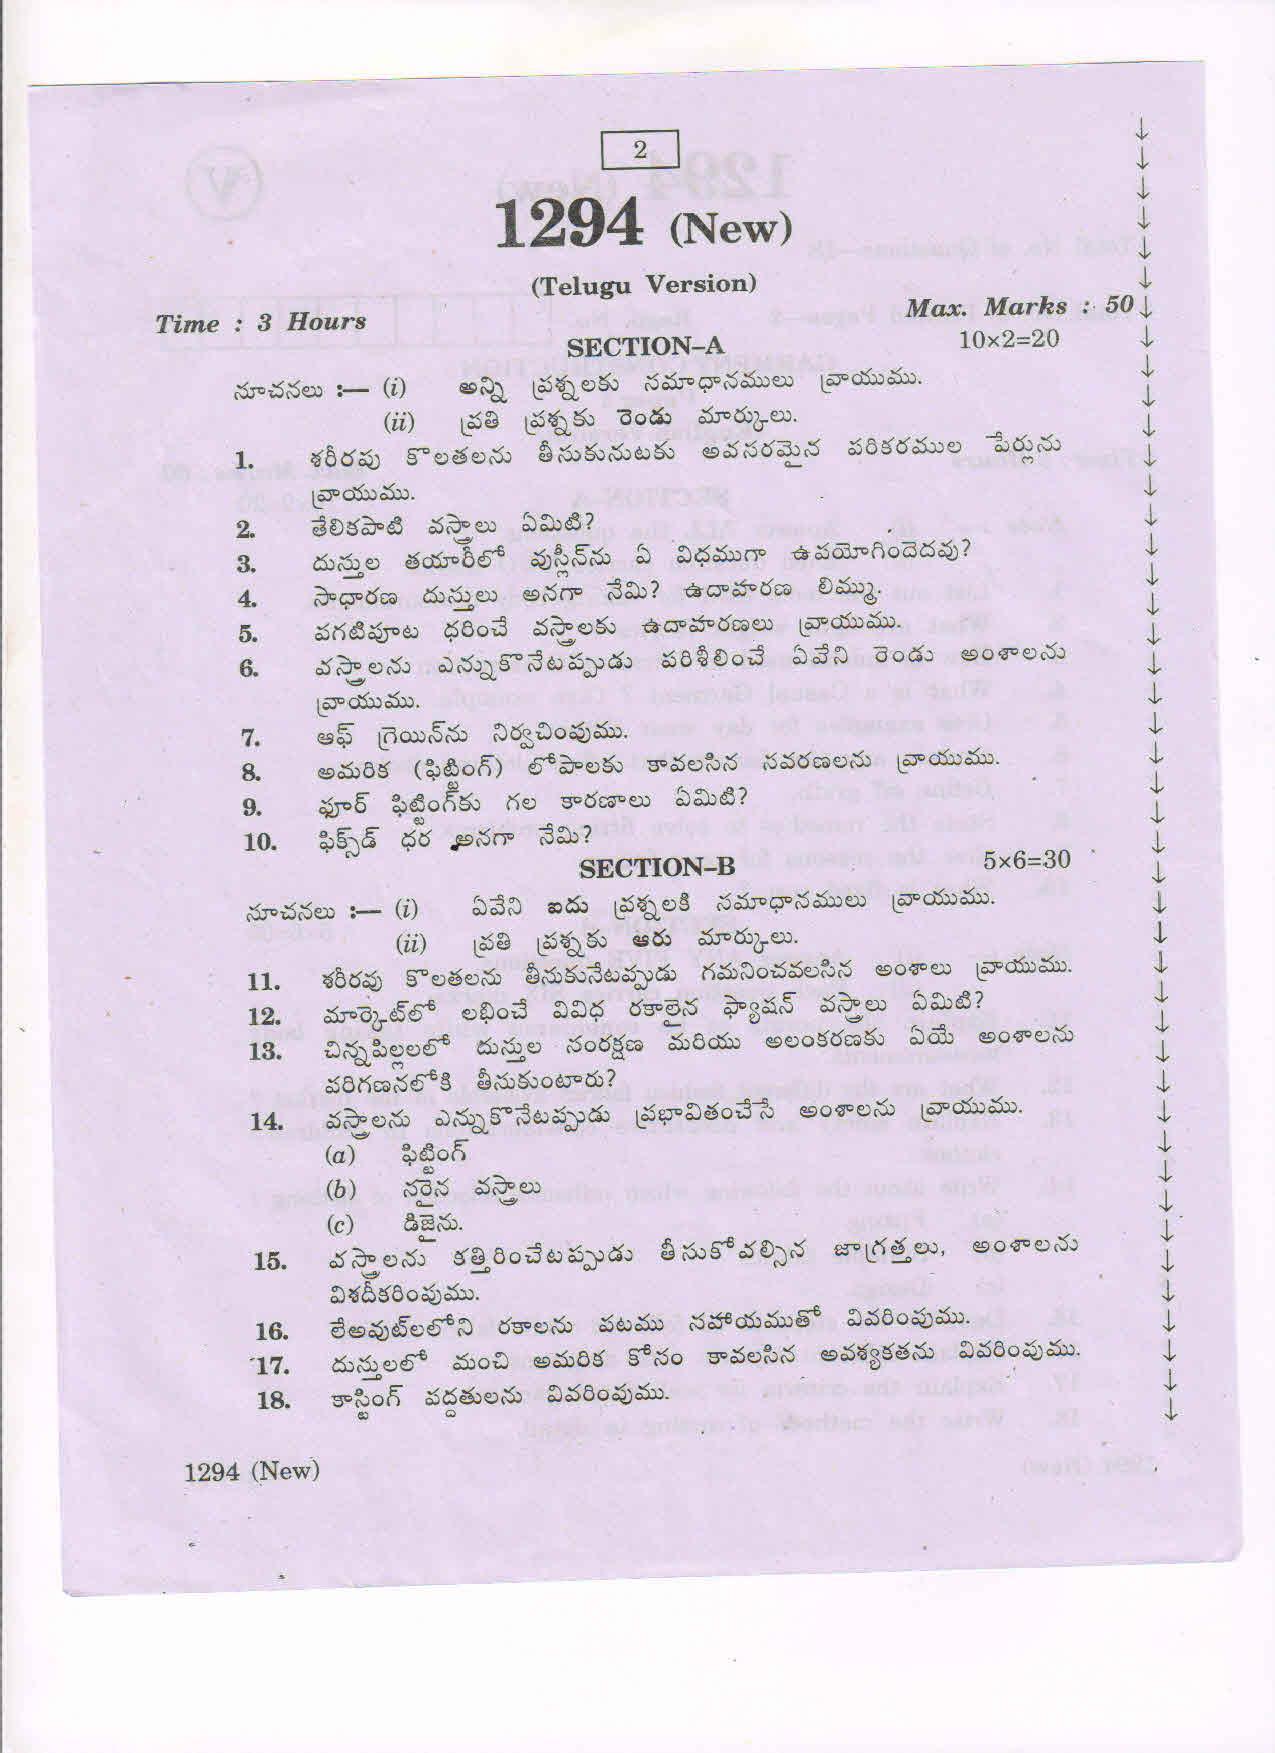 2
1294 (New)
(Telugu Version)
Time : 3 Hours Max. Marks : 50
SECTION–A 10×2=20
సూచనలు :— (i) అన్ని ప్రశ్నలకు సమాధానములు వ్రాయుము.
(ii) ప్రతి ప్రశ్నకు రెండు మార్కులు.
1. శరీరపు కొలతలను తీసుకునుటకు అవసరమైన పరికరముల పేర్లును
వ్రాయుము.
2. తేలికపాటి వస్త్రాలు ఏమిటి?
3. దుస్తుల తయారీలో వుస్లీన్‌ను ఏ విధముగా ఉపయోగించెదవు?
4. సాధారణ దుస్తులు అనగా నేమి? ఉదాహరణ లిమ్ము.
5. పగటిపూట ధరించే వస్త్రాలకు ఉదాహరణలు వ్రాయుము.
6. వస్త్రాలను ఎన్నుకొనేటప్పుడు పరిశీలించే ఏవేని రెండు అంశాలను
వ్రాయుము.
7. ఆఫ్ గ్రెయిన్‌ను నిర్వచింపుము.
8. అమరిక (ఫిట్టింగ్) లోపాలకు కావలసిన సవరణలను వ్రాయుము.
9. ఫూర్ ఫిట్టింగ్‌కు గల కారణాలు ఏమిటి?
10. ఫిక్స్‌డ్ ధర అనగా నేమి?
SECTION–B 5×6=30
సూచనలు :— (i) ఏవేని ఐదు ప్రశ్నలకి సమాధానములు వ్రాయుము.
(ii) ప్రతి ప్రశ్నకు ఆరు మార్కులు.
11. శరీరపు కొలతలను తీసుకునేటప్పుడు గమనించవలసిన అంశాలు వ్రాయుము.
12. మార్కెట్‌లో లభించే వివిధ రకాలైన ఫ్యాషన్ వస్త్రాలు ఏమిటి?
13. చిన్నపిల్లలలో దుస్తుల సంరక్షణ మరియు అలంకరణకు ఏయే అంశాలను
పరిగణనలోకి తీసుకుంటారు?
14. వస్త్రాలను ఎన్నుకొనేటప్పుడు ప్రభావితంచేసే అంశాలను వ్రాయుము.
(a) ఫిట్టింగ్
(b) సరైన వస్త్రాలు
(c) డిజైను.
15. వస్త్రాలను కత్తిరించేటప్పుడు తీసుకోవల్సిన జాగ్రత్తలు, అంశాలను
విశదీకరింపుము.
16. లేఅవుట్‌లలోని రకాలను పటము సహాయముతో వివరింపుము.
17. దుస్తులలో మంచి అమరిక కోసం కావలసిన అవశ్యకతను వివరింపుము.
18. కాస్టింగ్ పద్దతులను వివరింపుము.
1294 (New)